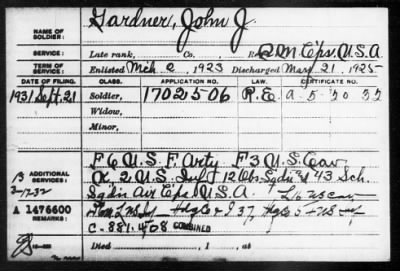 Gardner, John J.
NAME OF SOLDIER:
SERVICE:
Late rank, Co. Q M Cps. U.S.A
TERM OF SERVICE:
Enlisted Mch 2, 1923 Discharged May 21, 1925
DATE OF FILING. CLASS. APPLICATION NO. LAW. CERTIFICATE NO.
1931 Sept. 21 Soldier, 1702506 R.E.
Widow,
Minor,
ADDITIONAL SERVICES:
F 6 U.S. F. Arty F 3 U.S. Cav
K. 2 U.S. Inf 12 Obs. Sqdn & 43 Sch.
Sqdn Air Cps. U.S.A.
A 1476600
C-881.408 COMBINED
Died , 1 , at